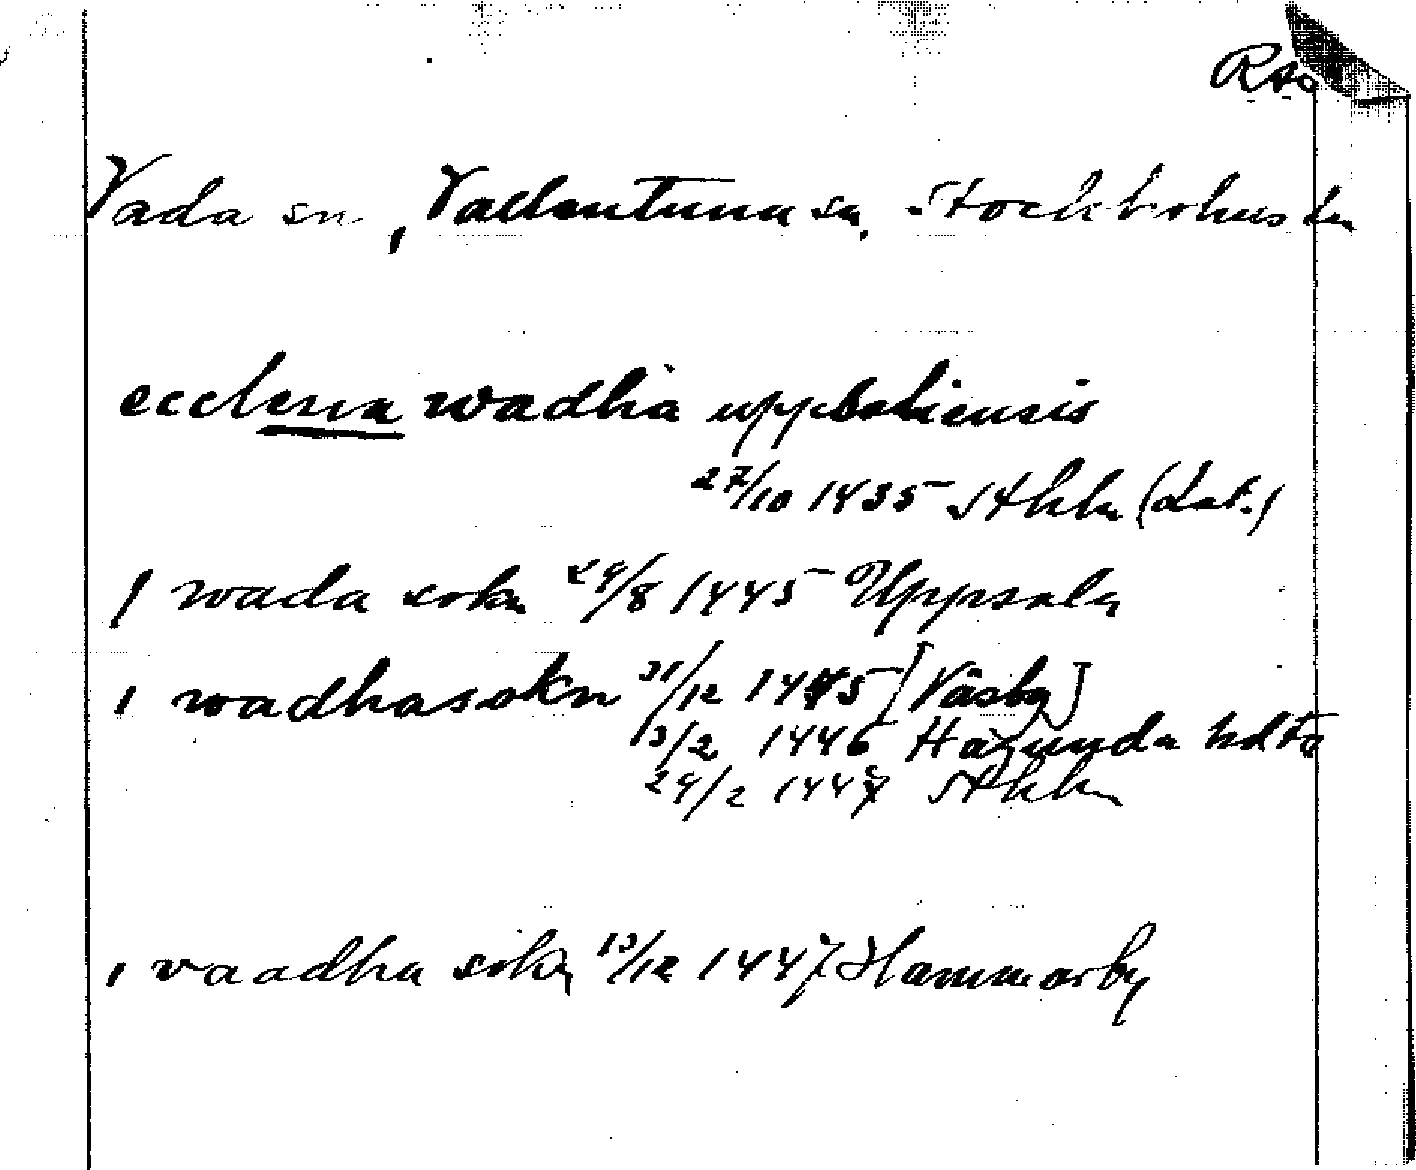 RAo
Vada sn, Vallentuna sn. Stockholms län
ecclesia wadha upplandiensis
27/10 1435 Sthlm (Lat.)
J wada sokn 29/8 1445 Uppsala
i wadhasokn 31/12 1445 [Väsby]
13/2 1446 Hagunda hdtg
29/2 1447 Sthlm
i vaadha sokn 13/12 1447 Hammarby